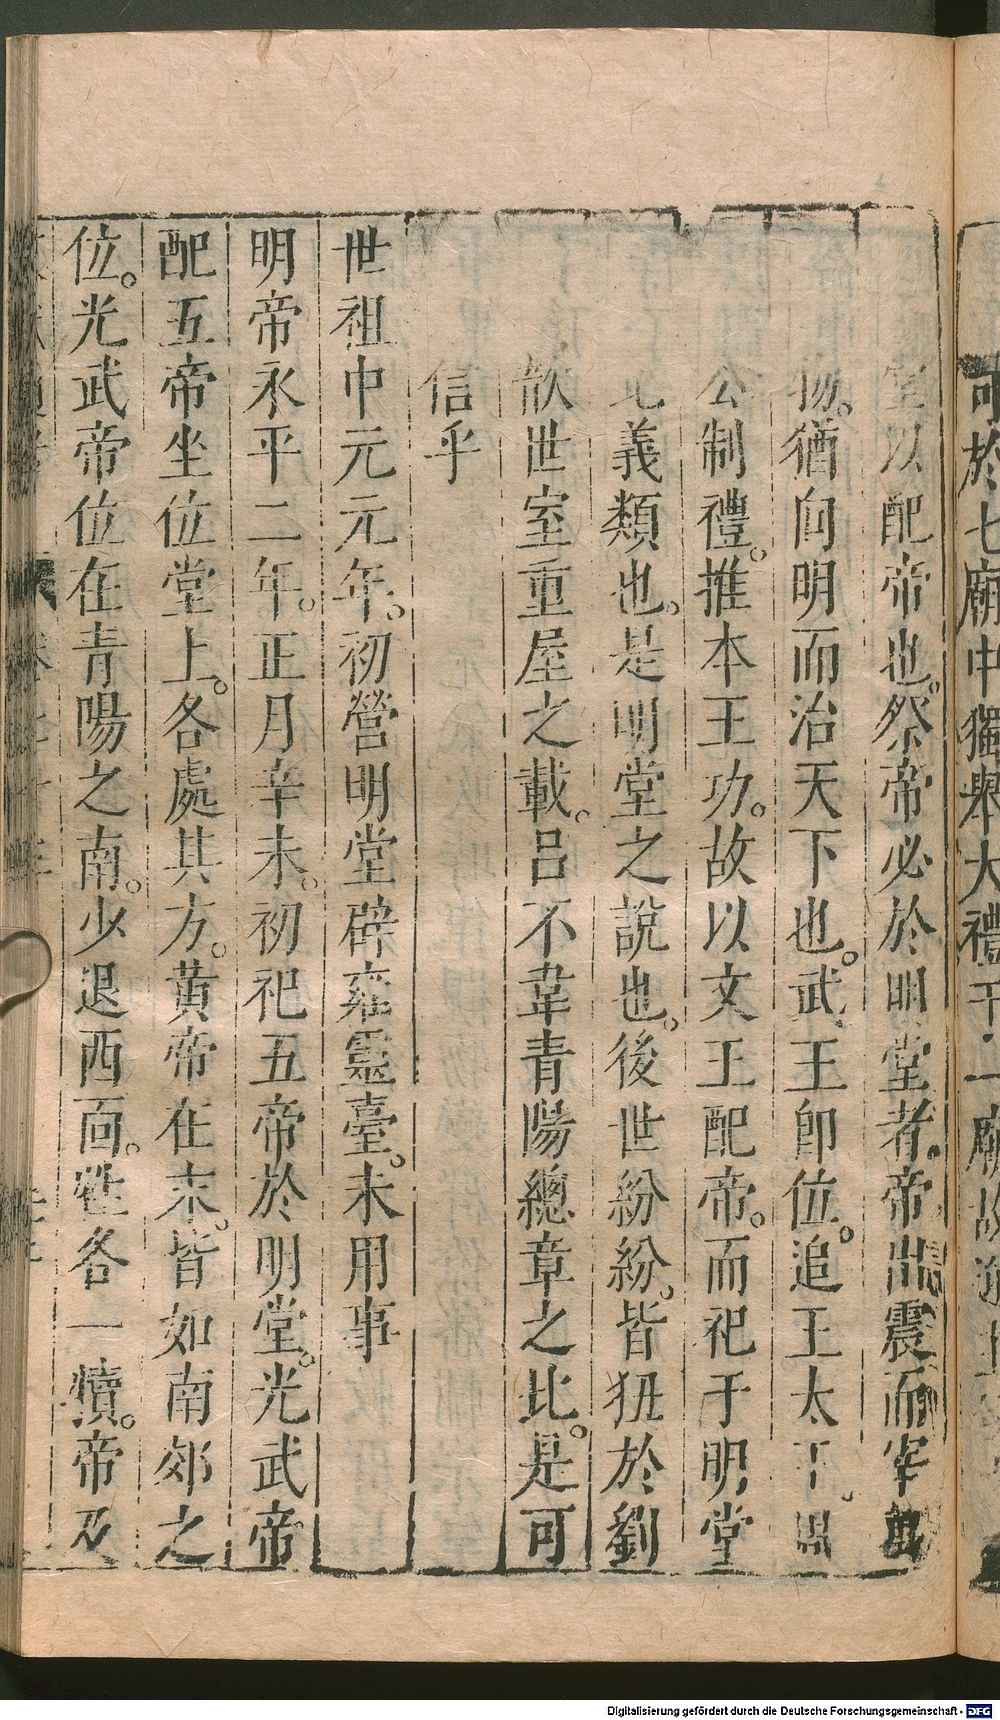 可於七廟中獨舉大禮于一廟故
堂以配帝也祭帝必於明堂者帝出震而宰
物猶向明而治天下也武王即位追王太王
公制禮推本王功故以文王配帝而祀于明堂
義類也是明堂之說也後世紛紛皆狃於劉
歆世室重屋之載呂不韋青陽總章之比是可
信乎
世祖中元元年初營明堂辟雍靈臺未用事
明帝永平二年正月辛未初祀五帝於明堂光武帝
配五帝坐位堂上各處其方黃帝在未皆如南郊之
位光武帝位在青陽之南少退西面牲各一犢帝及
Digitalisierung gefördert durch die Deutsche Forschungsgemeinschaft - DFG